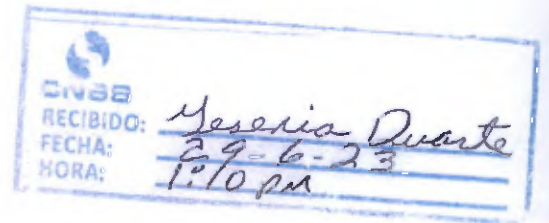 CNBS
RECIBIDO: Yesenia Duarte
FECHA: 29-6-23
HORA: 1:10 PM